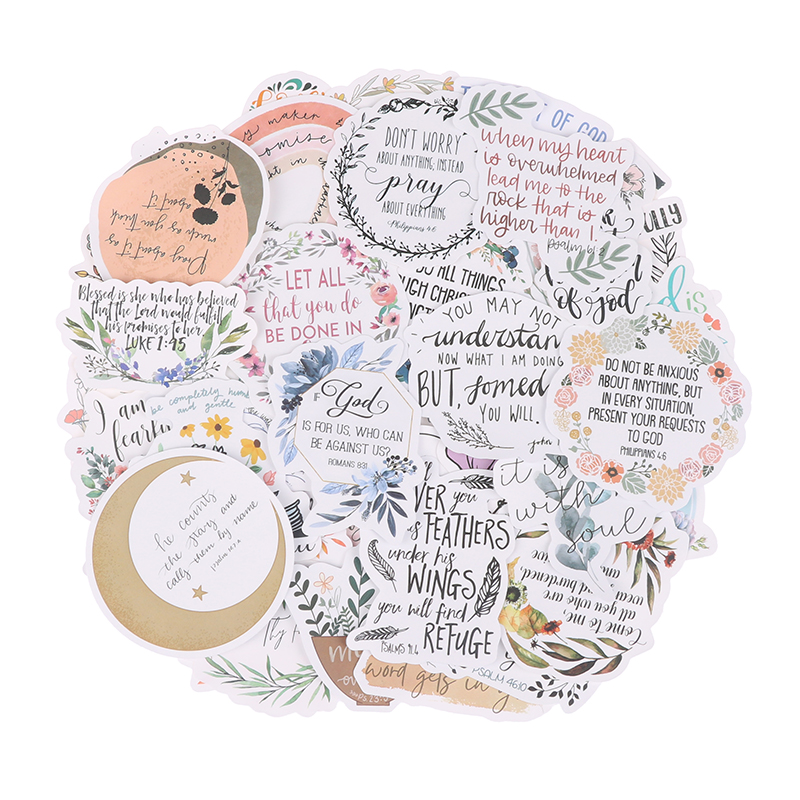 y maker
omise
DON'T WORRY
ABOUT ANYTHING; INSTEAD
pray
ABOUT EVERYTHING
Philippians 4:6
OF GOD
when my heart
is overwhelmed
lead me to the
rock that is
higher than I.
psalm 61:2
ULLY
Pray about it as
much as you think
about it
Blessed is she who has believed
that the Lord would fulfill
his promises to her
LUKE 1:45
LET ALL
that you do
BE DONE IN
DO ALL THINGS
ROUGH CHRIS
of god
is
YOU MAY NOT
understan
NOW WHAT I AM DOING
BUT, somed
YOU WILL.
John
DO NOT BE ANXIOUS
ABOUT ANYTHING, BUT
IN EVERY SITUATION,
PRESENT YOUR REQUESTS
TO GOD
PHILIPPIANS 4:6
IF God
IS FOR US, WHO CAN
BE AGAINST US?
ROMANS 8:31
I am
fearfu
be completely humb
and gentle
he counts
the stars and
calls them by name
Psalm 147:4
VER you
FEATHERS
under his
WINGS
you will find
REFUGE
PSALMS 91:4
it is
with
soul
Come to me,
all you who are
and burdened,
PSALM 46:10
Thy
my
word gets in